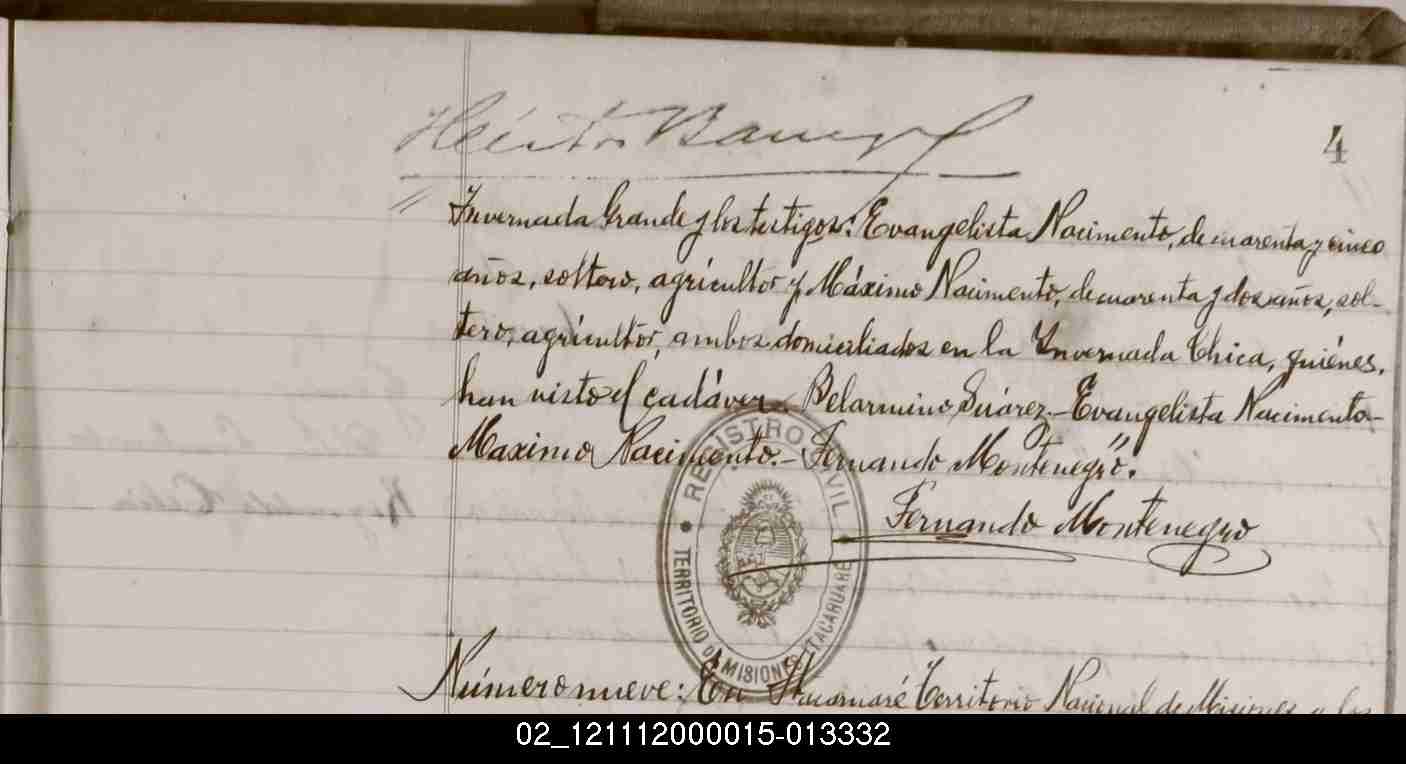 Héctor
4
Invernada Grande y los testigos: Evangelista Nacimento, de cuarenta y cinco
años, soltero, agricultor y Máximo Nacimento, de cuarenta y dos años, sol-
tero, agricultor, ambos domiciliados en la Invernada Chica, quiénes,
han visto el cadáver. Belarmino Suárez.- Evangelista Nacimento-
Maximo Nacimento.- Fernando Montenegro".
Fernando Montenegro
REGISTRO CIVIL
TERRITORIO DE MISIONES ITACARUARÉ
Número nueve: En Itacaruaré Territorio Nacional de Misiones a los
02_121112000015-013332